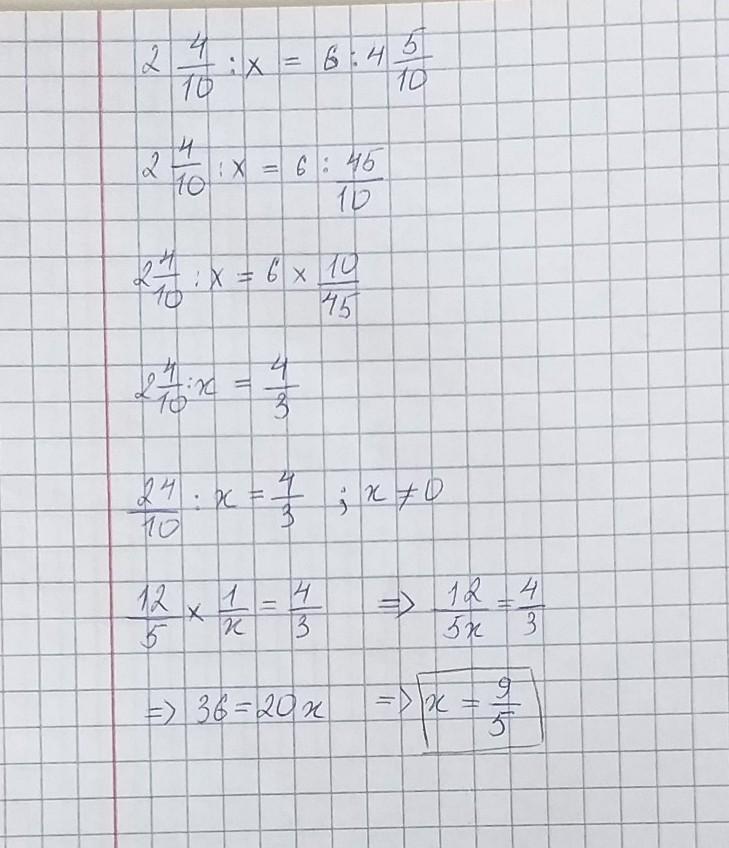 2 4/10 : x = 6 : 4 5/10
2 4/10 : x = 6 : 45/10
2 4/10 : x = 6 × 10/45
2 4/10 : x = 4/3
24/10 : x = 4/3 ; x ≠ 0
12/5 × 1/x = 4/3 => 12/5x = 4/3
=> 36 = 20x => x = 9/5